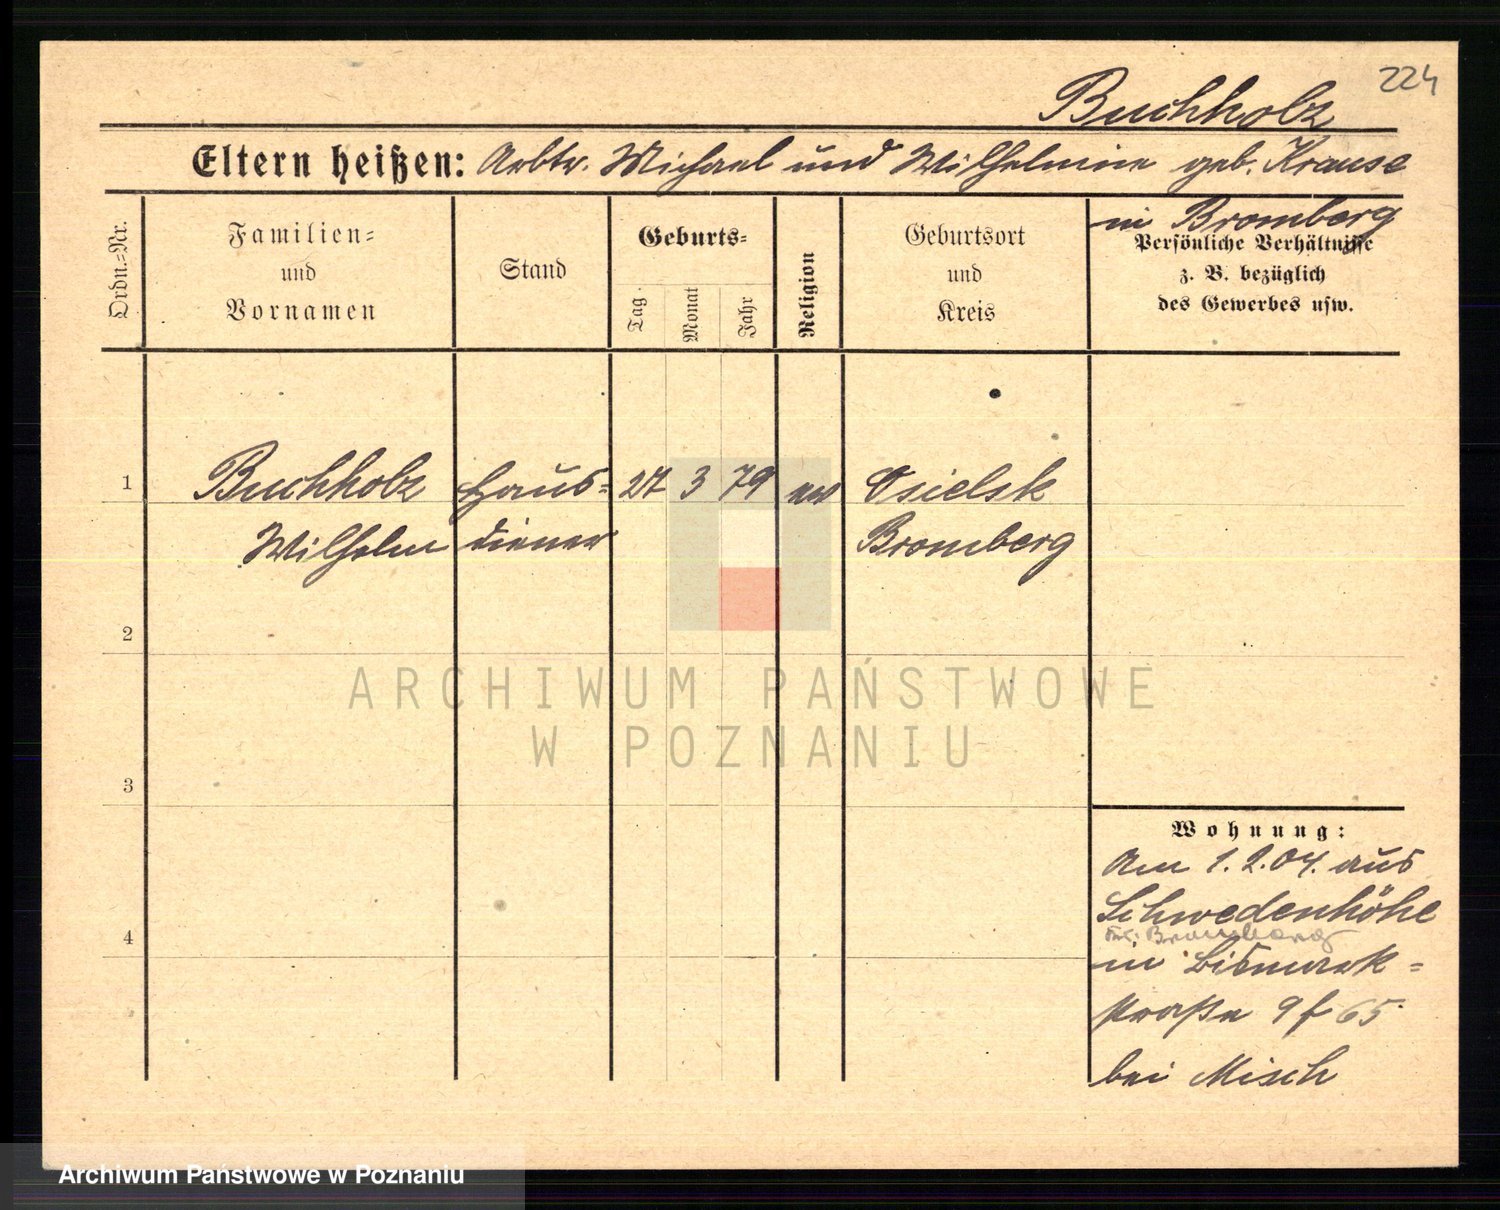 224
Buchholz
Eltern heißen: Arbtr. Michael und Wilhelmine geb. Krause
in Bromberg
Ordn.-Nr.
Familien-
und
Vornamen
Stand
Geburts-
Tag
Monat
Jahr
Religion
Geburtsort
und
Kreis
Persönliche Verhältnisse
z. B. bezüglich
des Gewerbes usw.
1
Buchholz Haus- 27 3 79 ev Osielsk
Wilhelm diener Bromberg
2
3
4
Wohnung:
Am 1.2.04. aus
Schwedenhöhe
Bromberg
in Bismark-
straße 9 65
bei Misch
ARCHIWUM PAŃSTWOWE
W POZNANIU
Archiwum Państwowe w Poznaniu